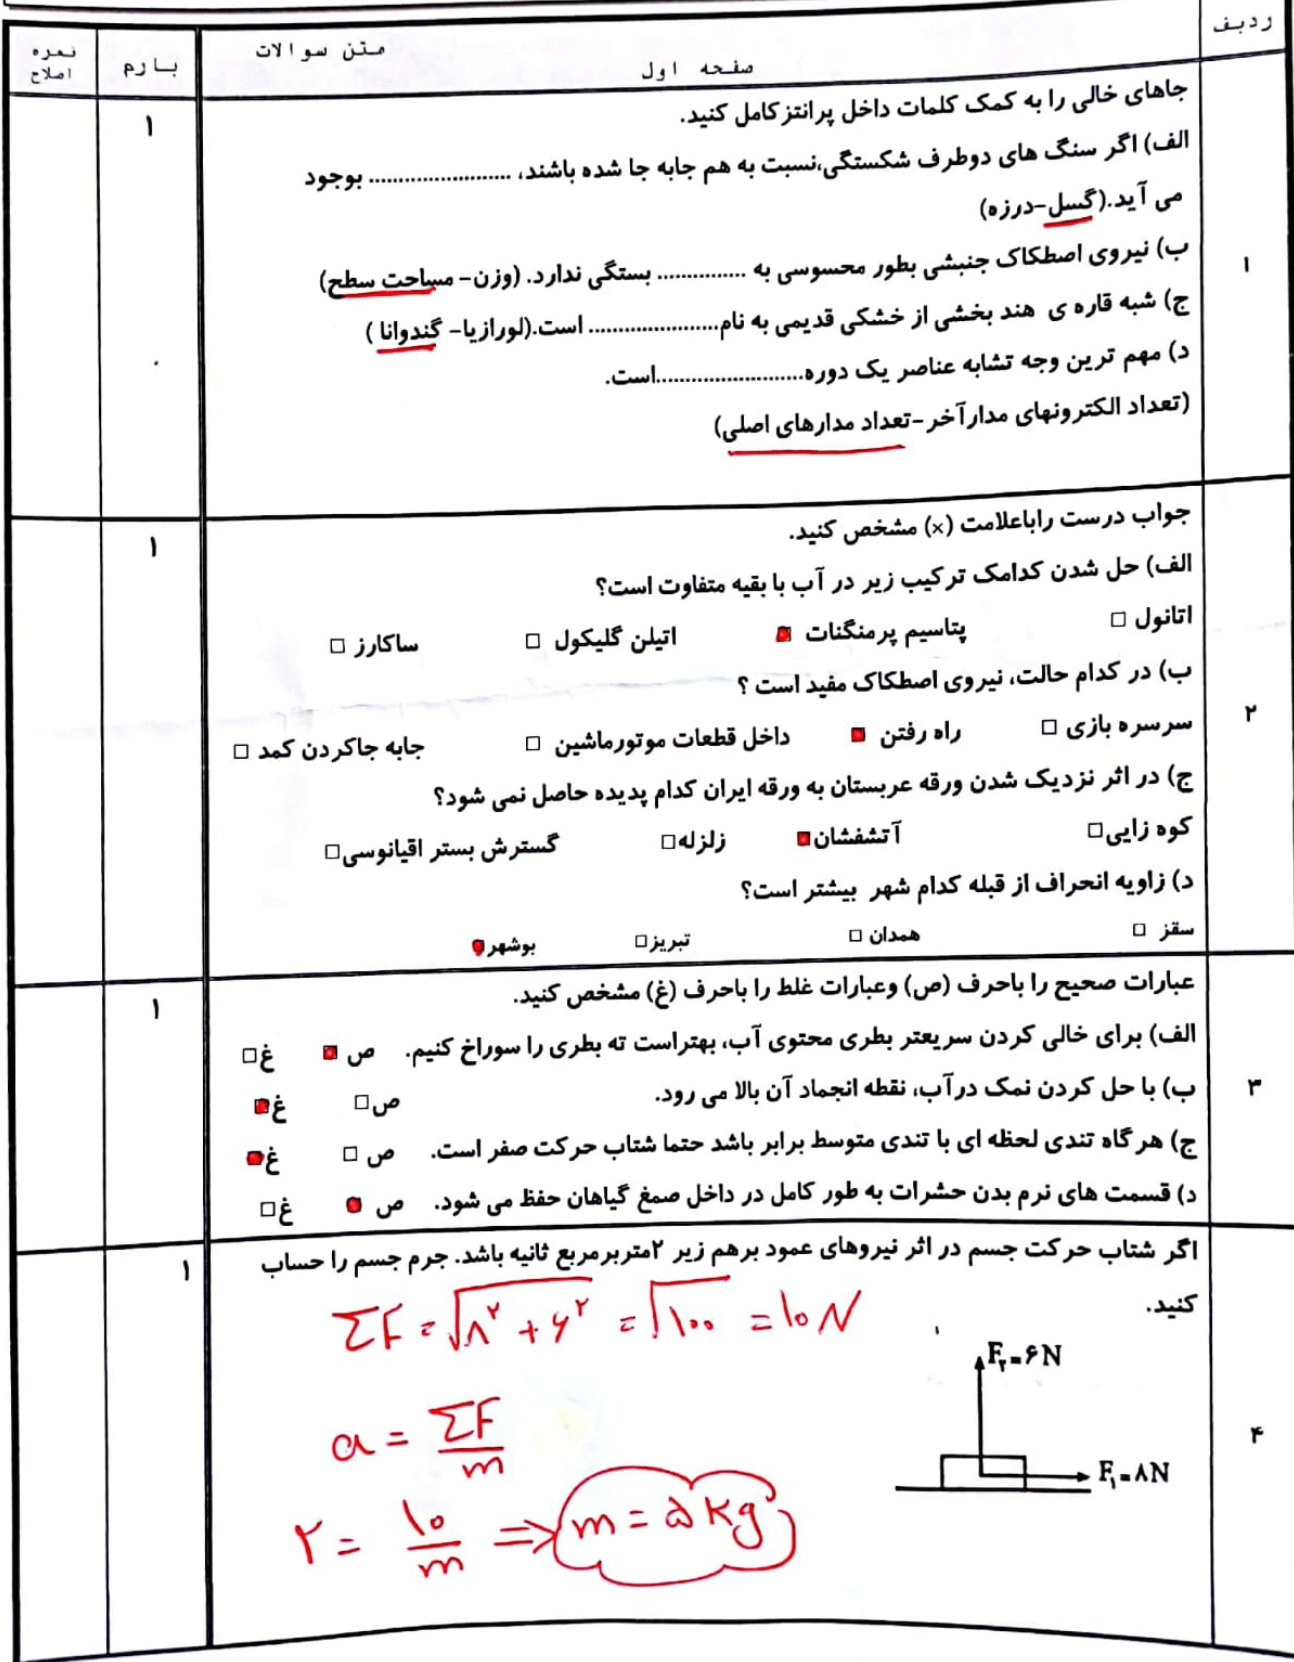 ردیف
متن سوالات
صفحه اول
بارم
نمره
اصلاح
۱
۱
جاهای خالی را به کمک کلمات داخل پرانتز کامل کنید.
الف) اگر سنگ های دوطرف شکستگی،نسبت به هم جابه جا شده باشند، ........................ بوجود
می آید.(گسل-درزه)
ب) نیروی اصطکاک جنبشی بطور محسوسی به ............... بستگی ندارد. (وزن- مساحت سطح)
ج) شبه قاره ی هند بخشی از خشکی قدیمی به نام...................... است.(لورازیا- گندوانا )
د) مهم ترین وجه تشابه عناصر یک دوره.........................است.
(تعداد الکترونهای مدارآخر-تعداد مدارهای اصلی)
۲
۱
جواب درست راباعلامت (×) مشخص کنید.
الف) حل شدن کدامک ترکیب زیر در آب با بقیه متفاوت است؟
اتانول □ پتاسیم پرمنگنات □ اتیلن گلیکول □ ساکارز □
ب) در کدام حالت، نیروی اصطکاک مفید است ؟
سرسره بازی □ راه رفتن □ داخل قطعات موتورماشین □ جابه جاکردن کمد □
ج) در اثر نزدیک شدن ورقه عربستان به ورقه ایران کدام پدیده حاصل نمی شود؟
کوه زایی□ آتشفشان□ زلزله□ گسترش بستر اقیانوسی□
د) زاویه انحراف از قبله کدام شهر بیشتر است؟
سقز □ همدان □ تبریز□ بوشهر□
۳
۱
عبارات صحیح را باحرف (ص) وعبارات غلط را باحرف (غ) مشخص کنید.
الف) برای خالی کردن سریعتر بطری محتوی آب، بهتراست ته بطری را سوراخ کنیم. ص □ غ□
ب) با حل کردن نمک درآب، نقطه انجماد آن بالا می رود. ص□ غ□
ج) هر گاه تندی لحظه ای با تندی متوسط برابر باشد حتما شتاب حرکت صفر است. ص □ غ□
د) قسمت های نرم بدن حشرات به طور کامل در داخل صمغ گیاهان حفظ می شود. ص □ غ□
۴
۱
اگر شتاب حرکت جسم در اثر نیروهای عمود برهم زیر ۲متربرمربع ثانیه باشد. جرم جسم را حساب
کنید.
ΣF = √۸² + ۶² = √۱۰۰ = ۱۰ N
F₂=۶N
a = ΣF/m
F₁=۸N
۲ = ۱۰/m ⇒ m = ۵ kg